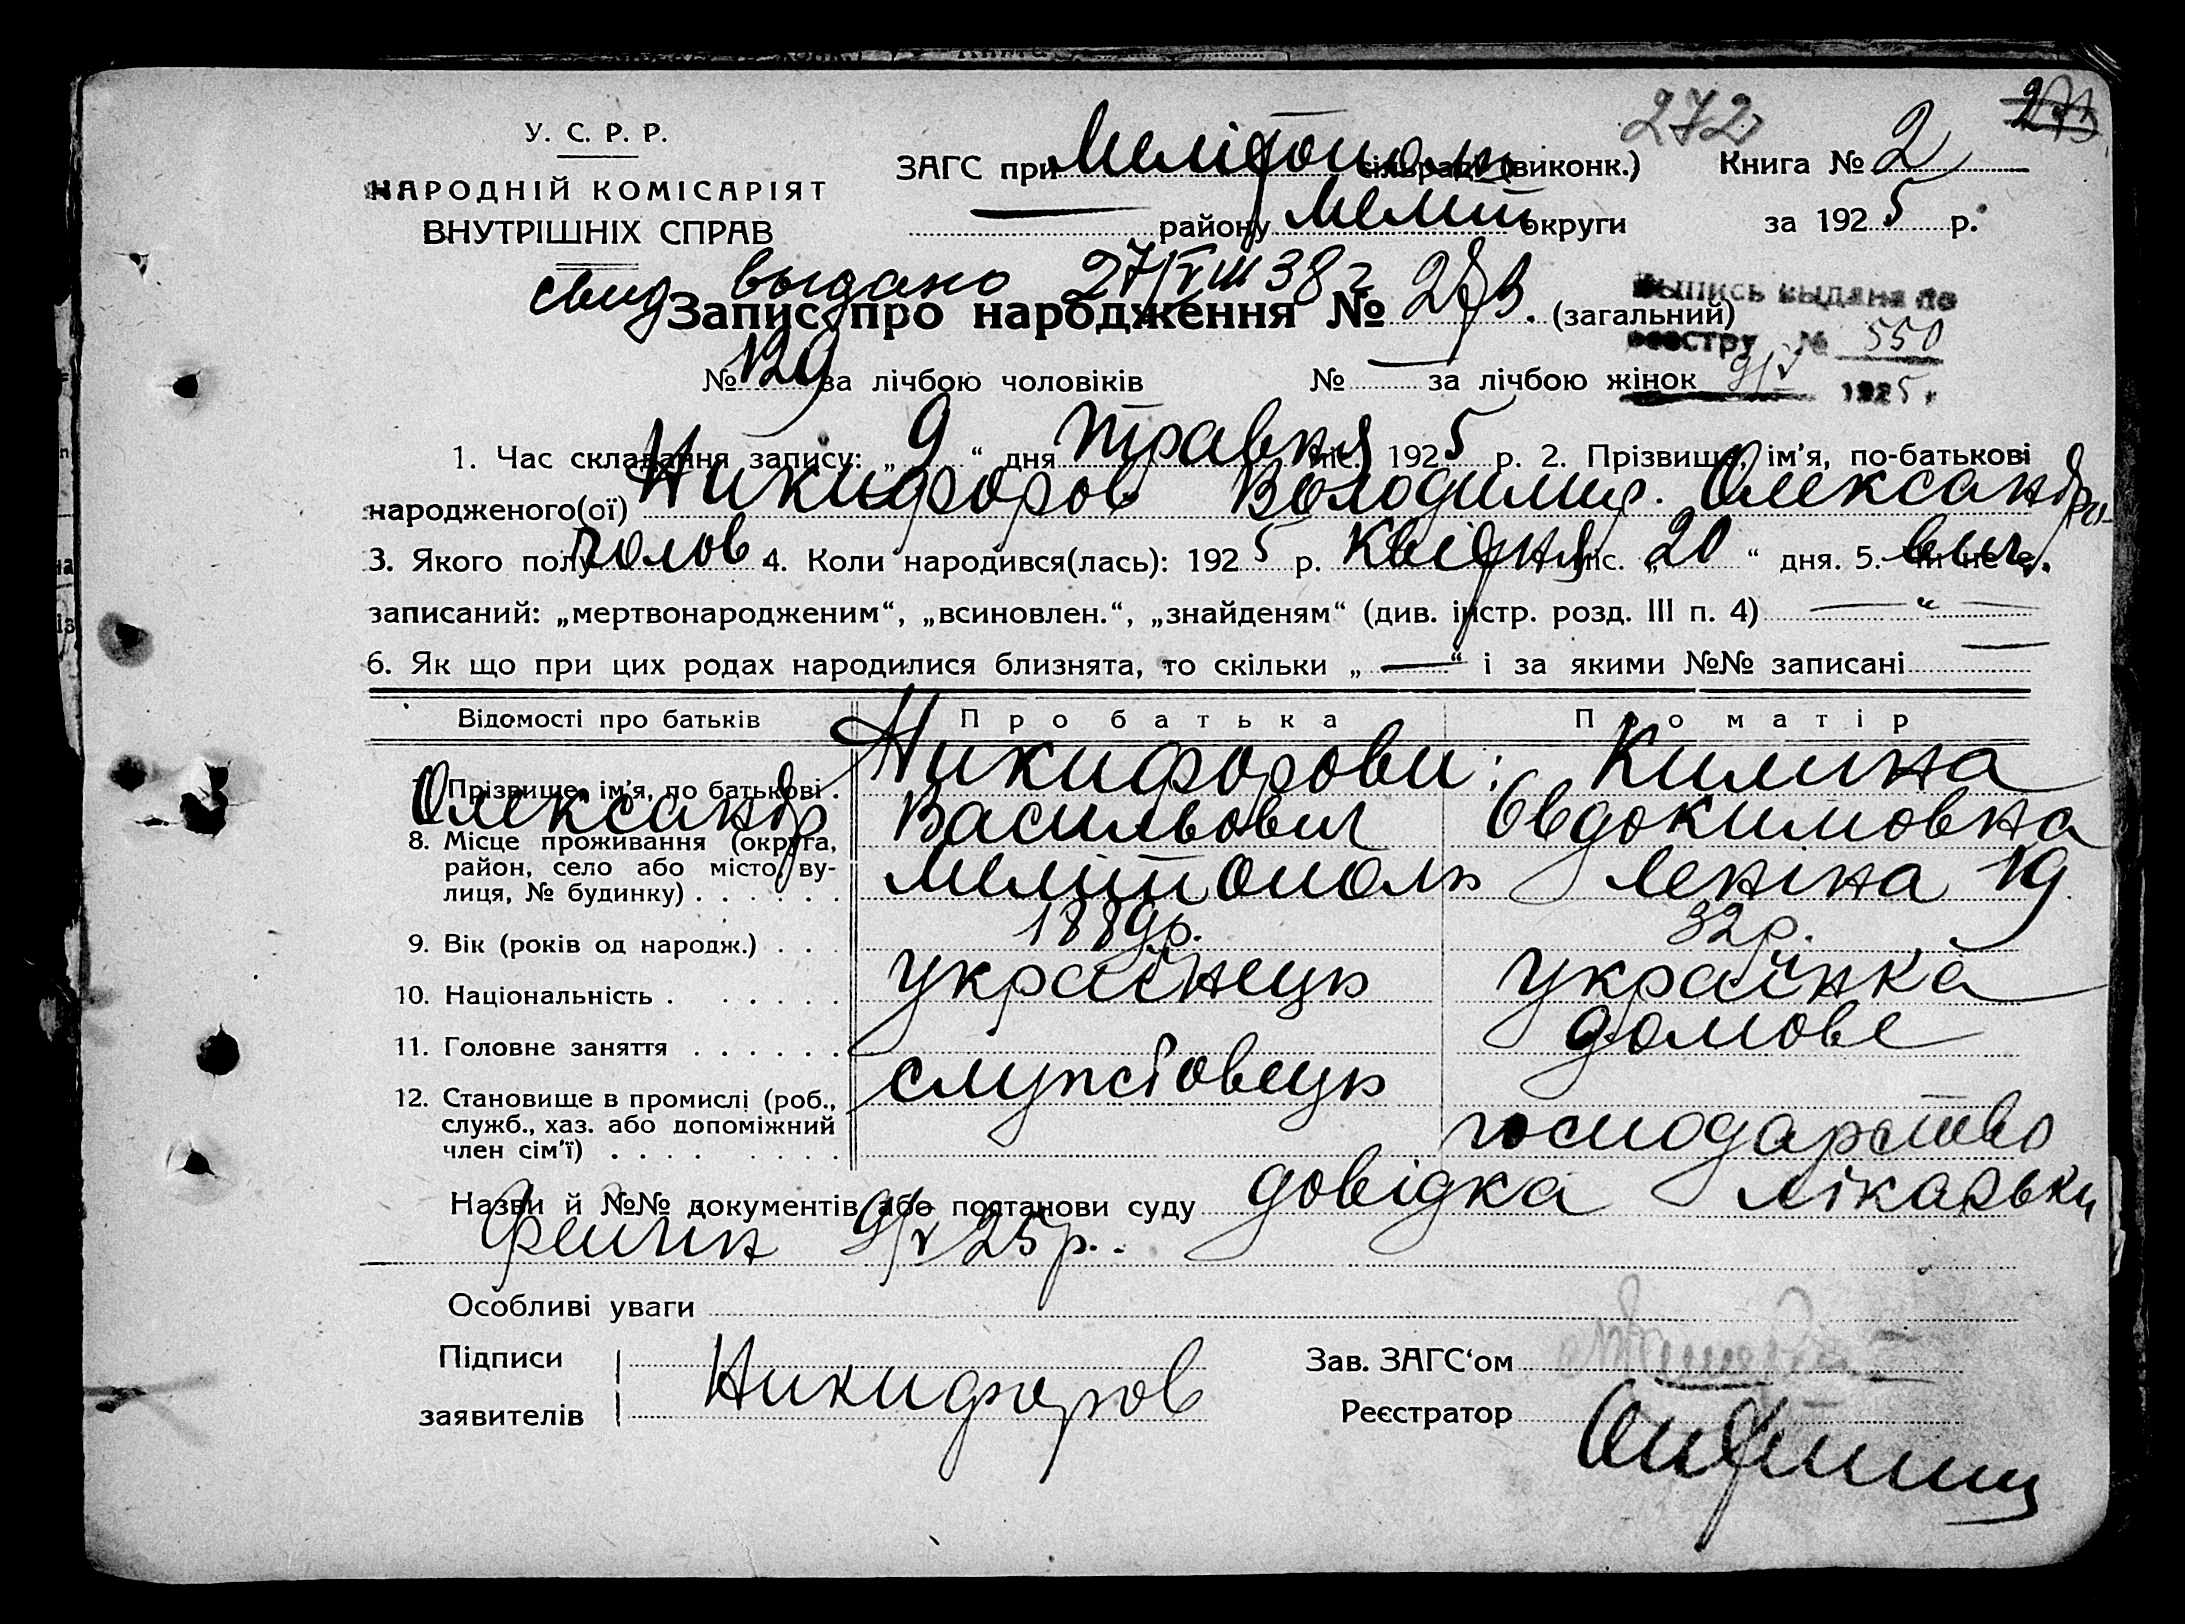 272
273
У. С. Р. Р.
НАРОДНІЙ КОМІСАРІЯТ
ВНУТРІШНІХ СПРАВ
ЗАГС при Мелітополь сільраді (виконк.)
Книга № 2
району Меліт. округи
за 1925 р.
свид выдано 27/VIII 38 г
Запис про народження № 273. (загальний)
Выпись выдана по
реестру № 550
9/V 1925 г.
№ 129 за лічбою чоловіків № — за лічбою жінок
1. Час складання запису: „9“ дня травня міс. 1925 р. 2. Прізвище, ім’я, по-батькові
народженого(ої) Никифоров Володимир Олександро-
3. Якого полу чолов 4. Коли народився(лась): 1925 р. Квітня міс. „20“ дня. 5. Чи не є вич.
записаний: „мертвонародженим“, „всиновлен.“, „знайденям“ (див. інстр. розд. III п. 4) — “ —
6. Як що при цих родах народилися близнята, то скільки „ — “ і за якими №№ записані —
Відомості про батьків Про батька Про матір
7. Прізвище, ім’я, по батькові . Никифорови: Килина
Олександр Васильович Овдокимовна
8. Місце проживання (округа,
район, село або місто, ву-
лиця, № будинку) . . . . . . Мелітополь Леніна 19
9. Вік (років од народж.) . . . 1889р. 32р.
10. Національність . . . . . . українець українка
11. Головне заняття . . . . . . домове
12. Становище в промислі (роб.,
служб., хаз. або допоміжний
член сім’ї) . . . . . . . . службовець господарство
Назви й №№ документів або постанови суду довідка лікарьки
9/V 25р.
Особливі уваги
Підписи
заявителів
Никифоров
Зав. ЗАГС‘ом
Реєстратор